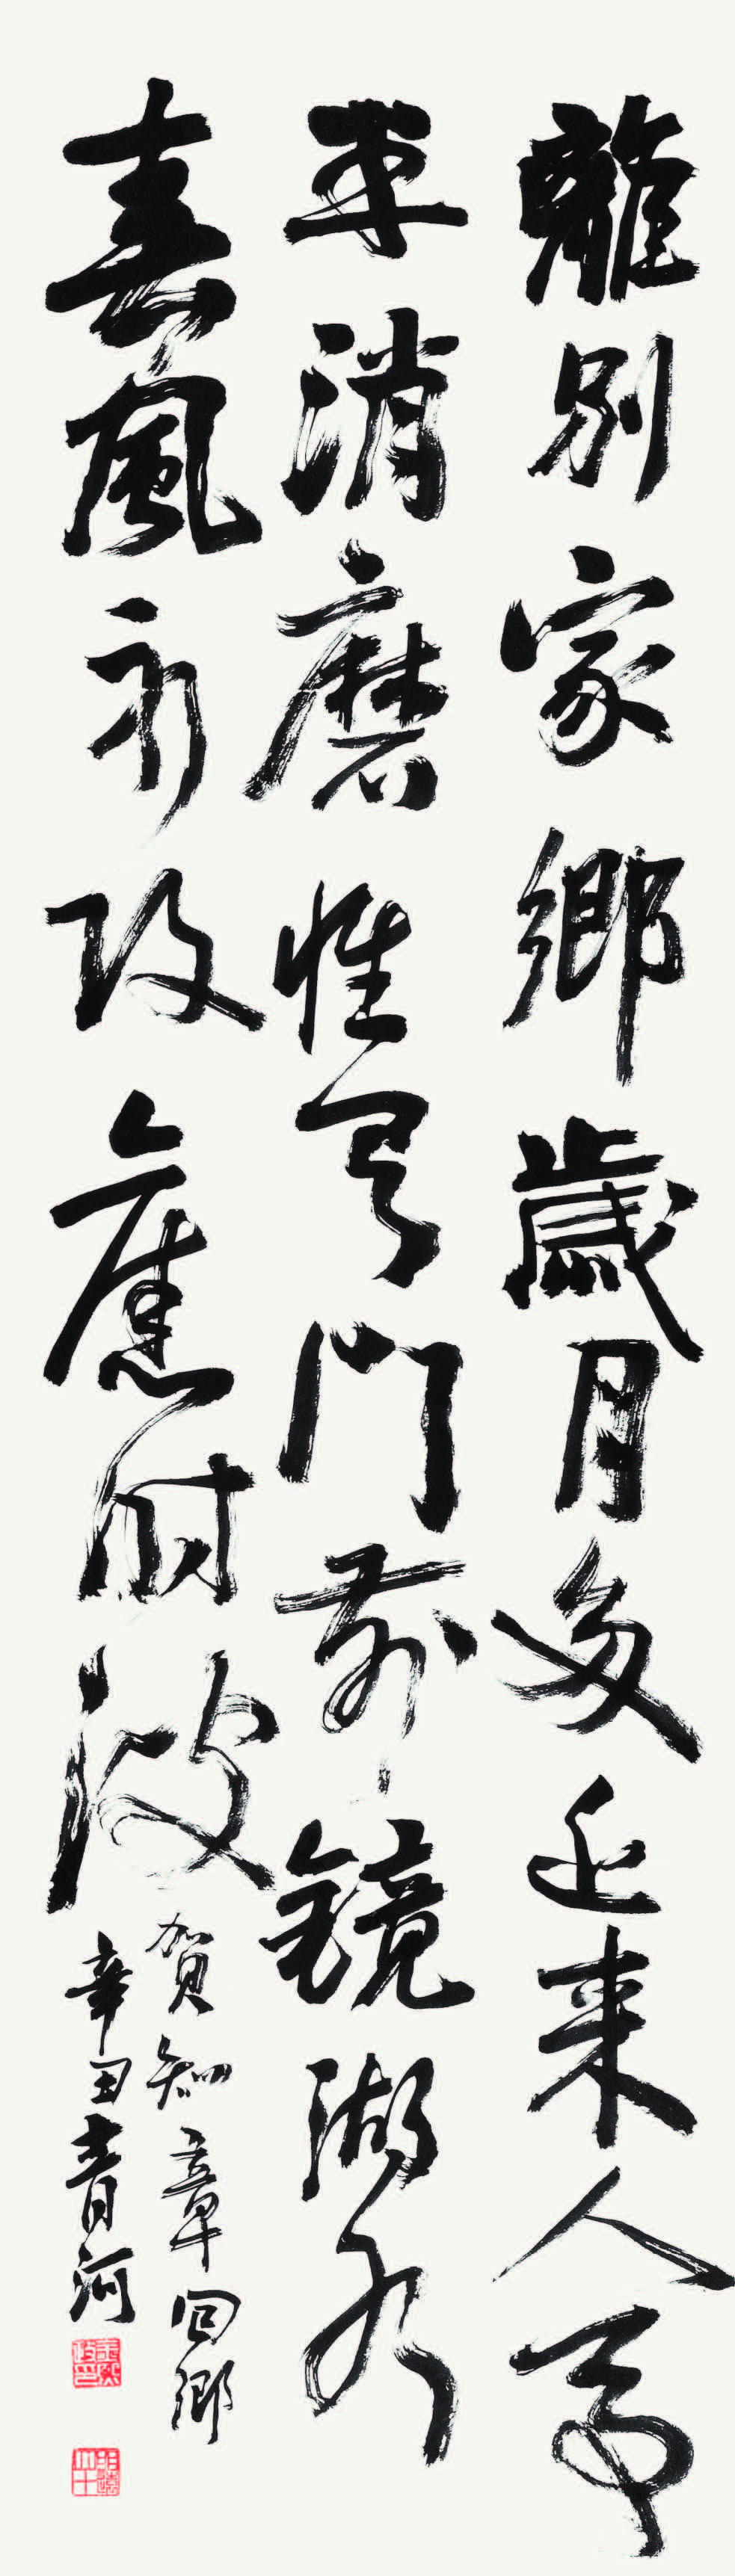 離別家鄉歲月多近來人事
半消磨惟有門前鏡湖水
春風不改舊時波
賀知章回鄉
辛丑青河